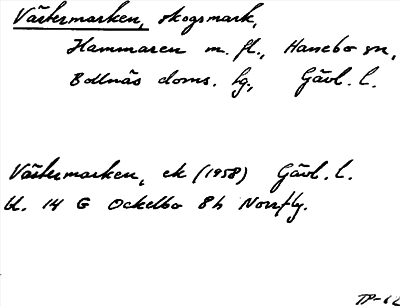 Västermarken, skogsmark,
Hammaren m. fl., Hanebo sn,
Bollnäs doms. hg., Gävl. l.
Västermarken, ek (1958) Gävl. l.
bl. 14 G Ockelbo 8h Norrfly.
TP-62